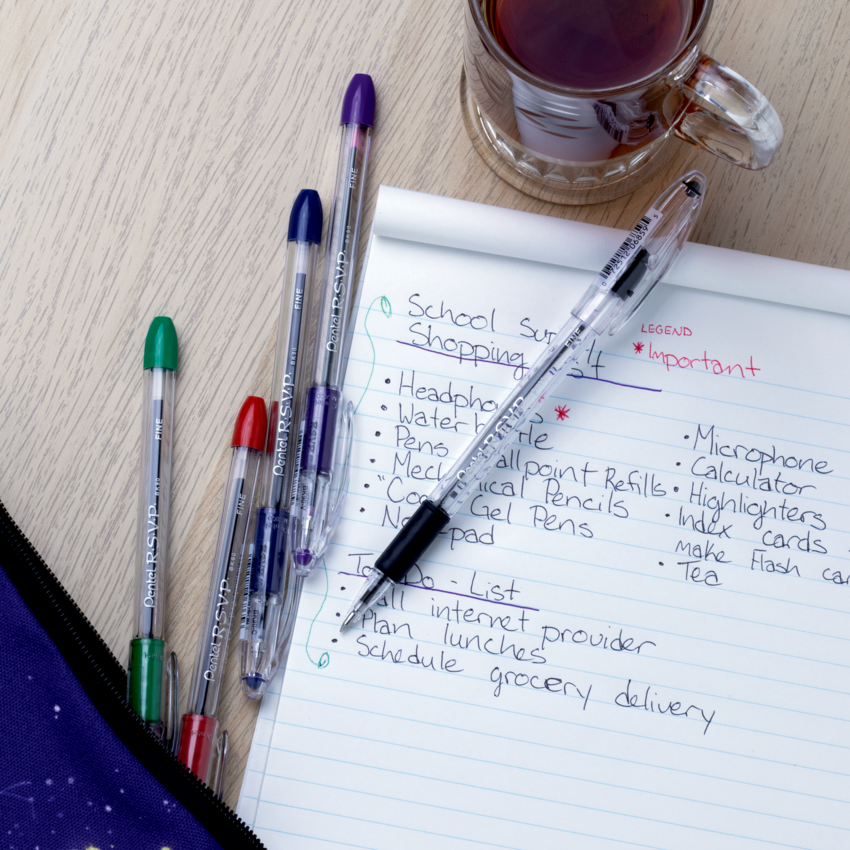 School
Shopping List
LEGEND
* Important
• Headphones *
• Water bottle
• Pens
• Mech Ballpoint Refills
• Pencils
• Gel Pens
pad
• Microphone
• Calculator
• Highlighters
• Index cards
make Flash
• Tea
To Do - List
• Call internet provider
• Plan lunches
• Schedule grocery delivery
Pentel R.S.V.P. FINE
Pentel R.S.V.P. FINE
Pentel R.S.V.P. BK90 FINE
Pentel R.S.V.P. BK90 FINE
R.S.V.P. FINE